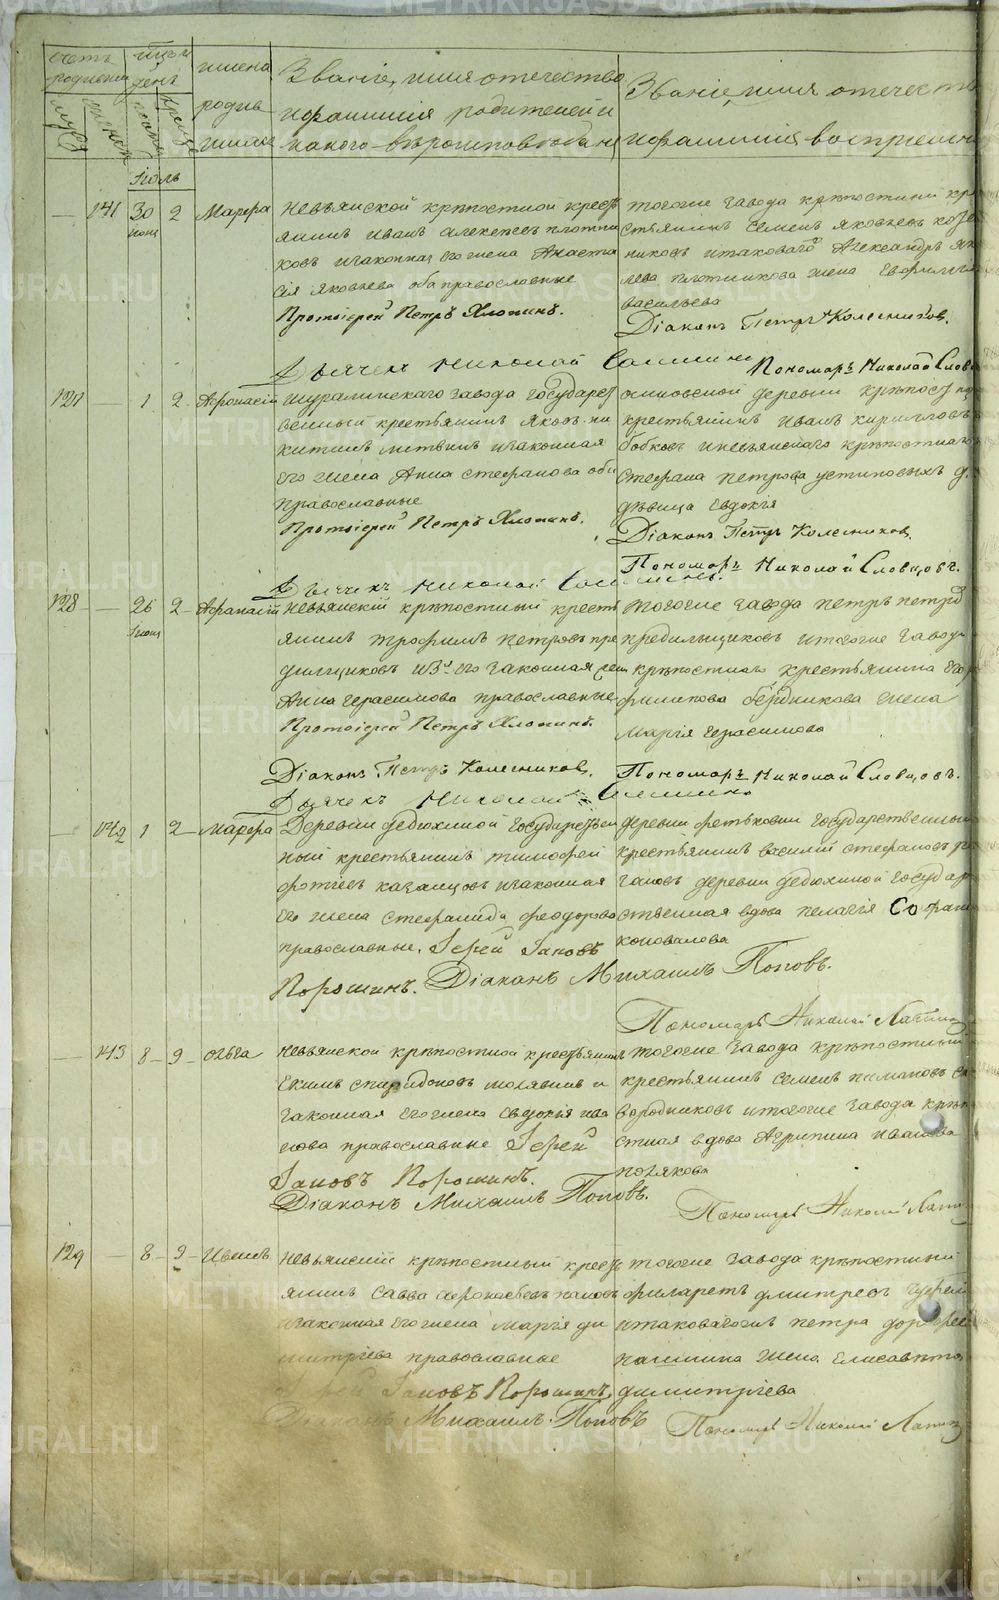 Счетъ родившихся
Мѣсяцъ и день
имена родившихся
Званіе, имя отечество
и фамилия родителей и
какого вѣроисповѣданія
Званіе, имя отечество
и фамилия воспріемни
муж
женск
рожд
крещ
Іюль
— 141 30 іюня 2 Марфа
Невьянской крѣпостной крест
янинъ Иванъ Алексеевъ плотни
ковъ изаконная его жена Анаста
сія Яковлева оба православные
Протоіерей Петръ Хлопинъ.
тогоже завода крѣпостный кре
стьянинъ Семенъ Яковлевъ
никовъ итаковаго Александръ Як
лева плотникова жена
васильева
Діаконъ Петръ Колесников.
Дьячекъ Николай
Пономарь Николай Слов
127 — 1 2 Афонасій
Шуралинскаго завода государст
венный крестьянинъ Яковъ ни
китинъ литвинъ изаконная
его жена Анна стефанова оба
православные
Протоіерей Петръ Хлопинъ.
деревни крѣпост
крестьянинъ Иванъ кирилловъ
бобковъ иневьянскаго крѣпостнаго
Стефана петрова устиновыхъ д
дѣвица Евдокія
Діаконъ Петръ Колесников.
Пономарь Николай Словцовъ.
Дьячекъ Николай
128 — 26 іюня 2 Афанасій
Невьянскій крѣпостный кресть
янинъ трофимъ петровъ пре
дильщиковъ и его законная жен
Анна герасимова православные
Протоіерей Петръ Хлопинъ
тогоже завода петръ петров
предильщиковъ итогоже завода
крѣпостнаго крестьянина Его
филипова бердникова жена
Марія Герасимова
Діаконъ Петръ Колесников.
Пономарь Николай Словцовъ.
Дьячекъ Николай
— 142 1 2 Марфа
Деревни федюхиной государствен
ный крестьянинъ тимофей
фотиевъ казанцовъ изаконная
его жена стефанида феодорова
православные. Іерей Іаковъ
Порошинъ. Діаконъ Михаилъ Поповъ.
деревни фетьковки государственный
крестьянинъ василій стефановъ
деревни федюхиной государ
ственная вдова пелагія Софрон
коновалова
Пономарь Николай Лапин
— 143 8 9 Ольга
Невьянской крѣпостной крестьянинъ
Екимъ спиридоновъ молявинъ и
законная его жена Евдокія ива
нова православные Іерей
Іаковъ Порошинъ.
Діаконъ Михаилъ Поповъ.
тогоже завода крѣпостный
крестьянинъ семенъ пимановъ ск
вородниковъ итогоже завода крѣп
стная вдова Агрипина иванова
полякова
Пономарь Николай Лапи
129 — 8 9 Иванъ
Невьянскій крѣпостный кресть
янинъ Савва афонасьевъ поповъ
изаконная его жена марія ди
митріева православные
Іерей Іаковъ Порошинъ.
Діаконъ Михаилъ Поповъ
тогоже завода крѣпостный
филаретъ дмитреевъ
итаковагожъ петра дорофее
жена Елисавета
димитріева
Пономарь Николай Лапин
METRIKI.GASO-URAL.RU